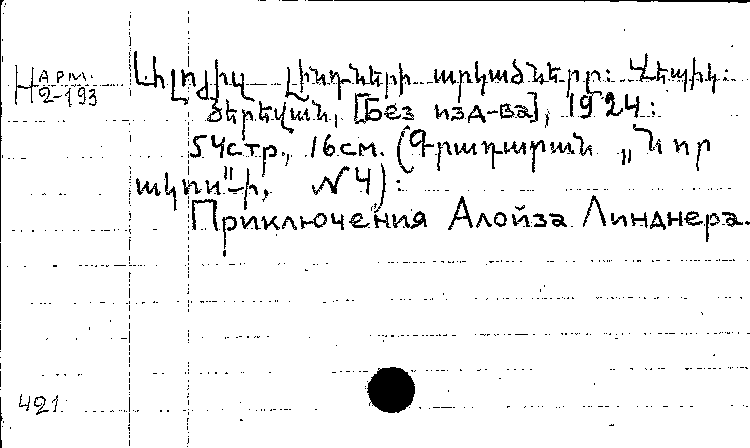 Н АРМ.
2-193
Լինդների արկածները: Վեպիկ:
Երեվան, [Без изд-ва], 1924:
54стр., 16см. (Գրադարան „Նոր
ակոս"-ի, №4):
Приключения Алойза Линднера.
421